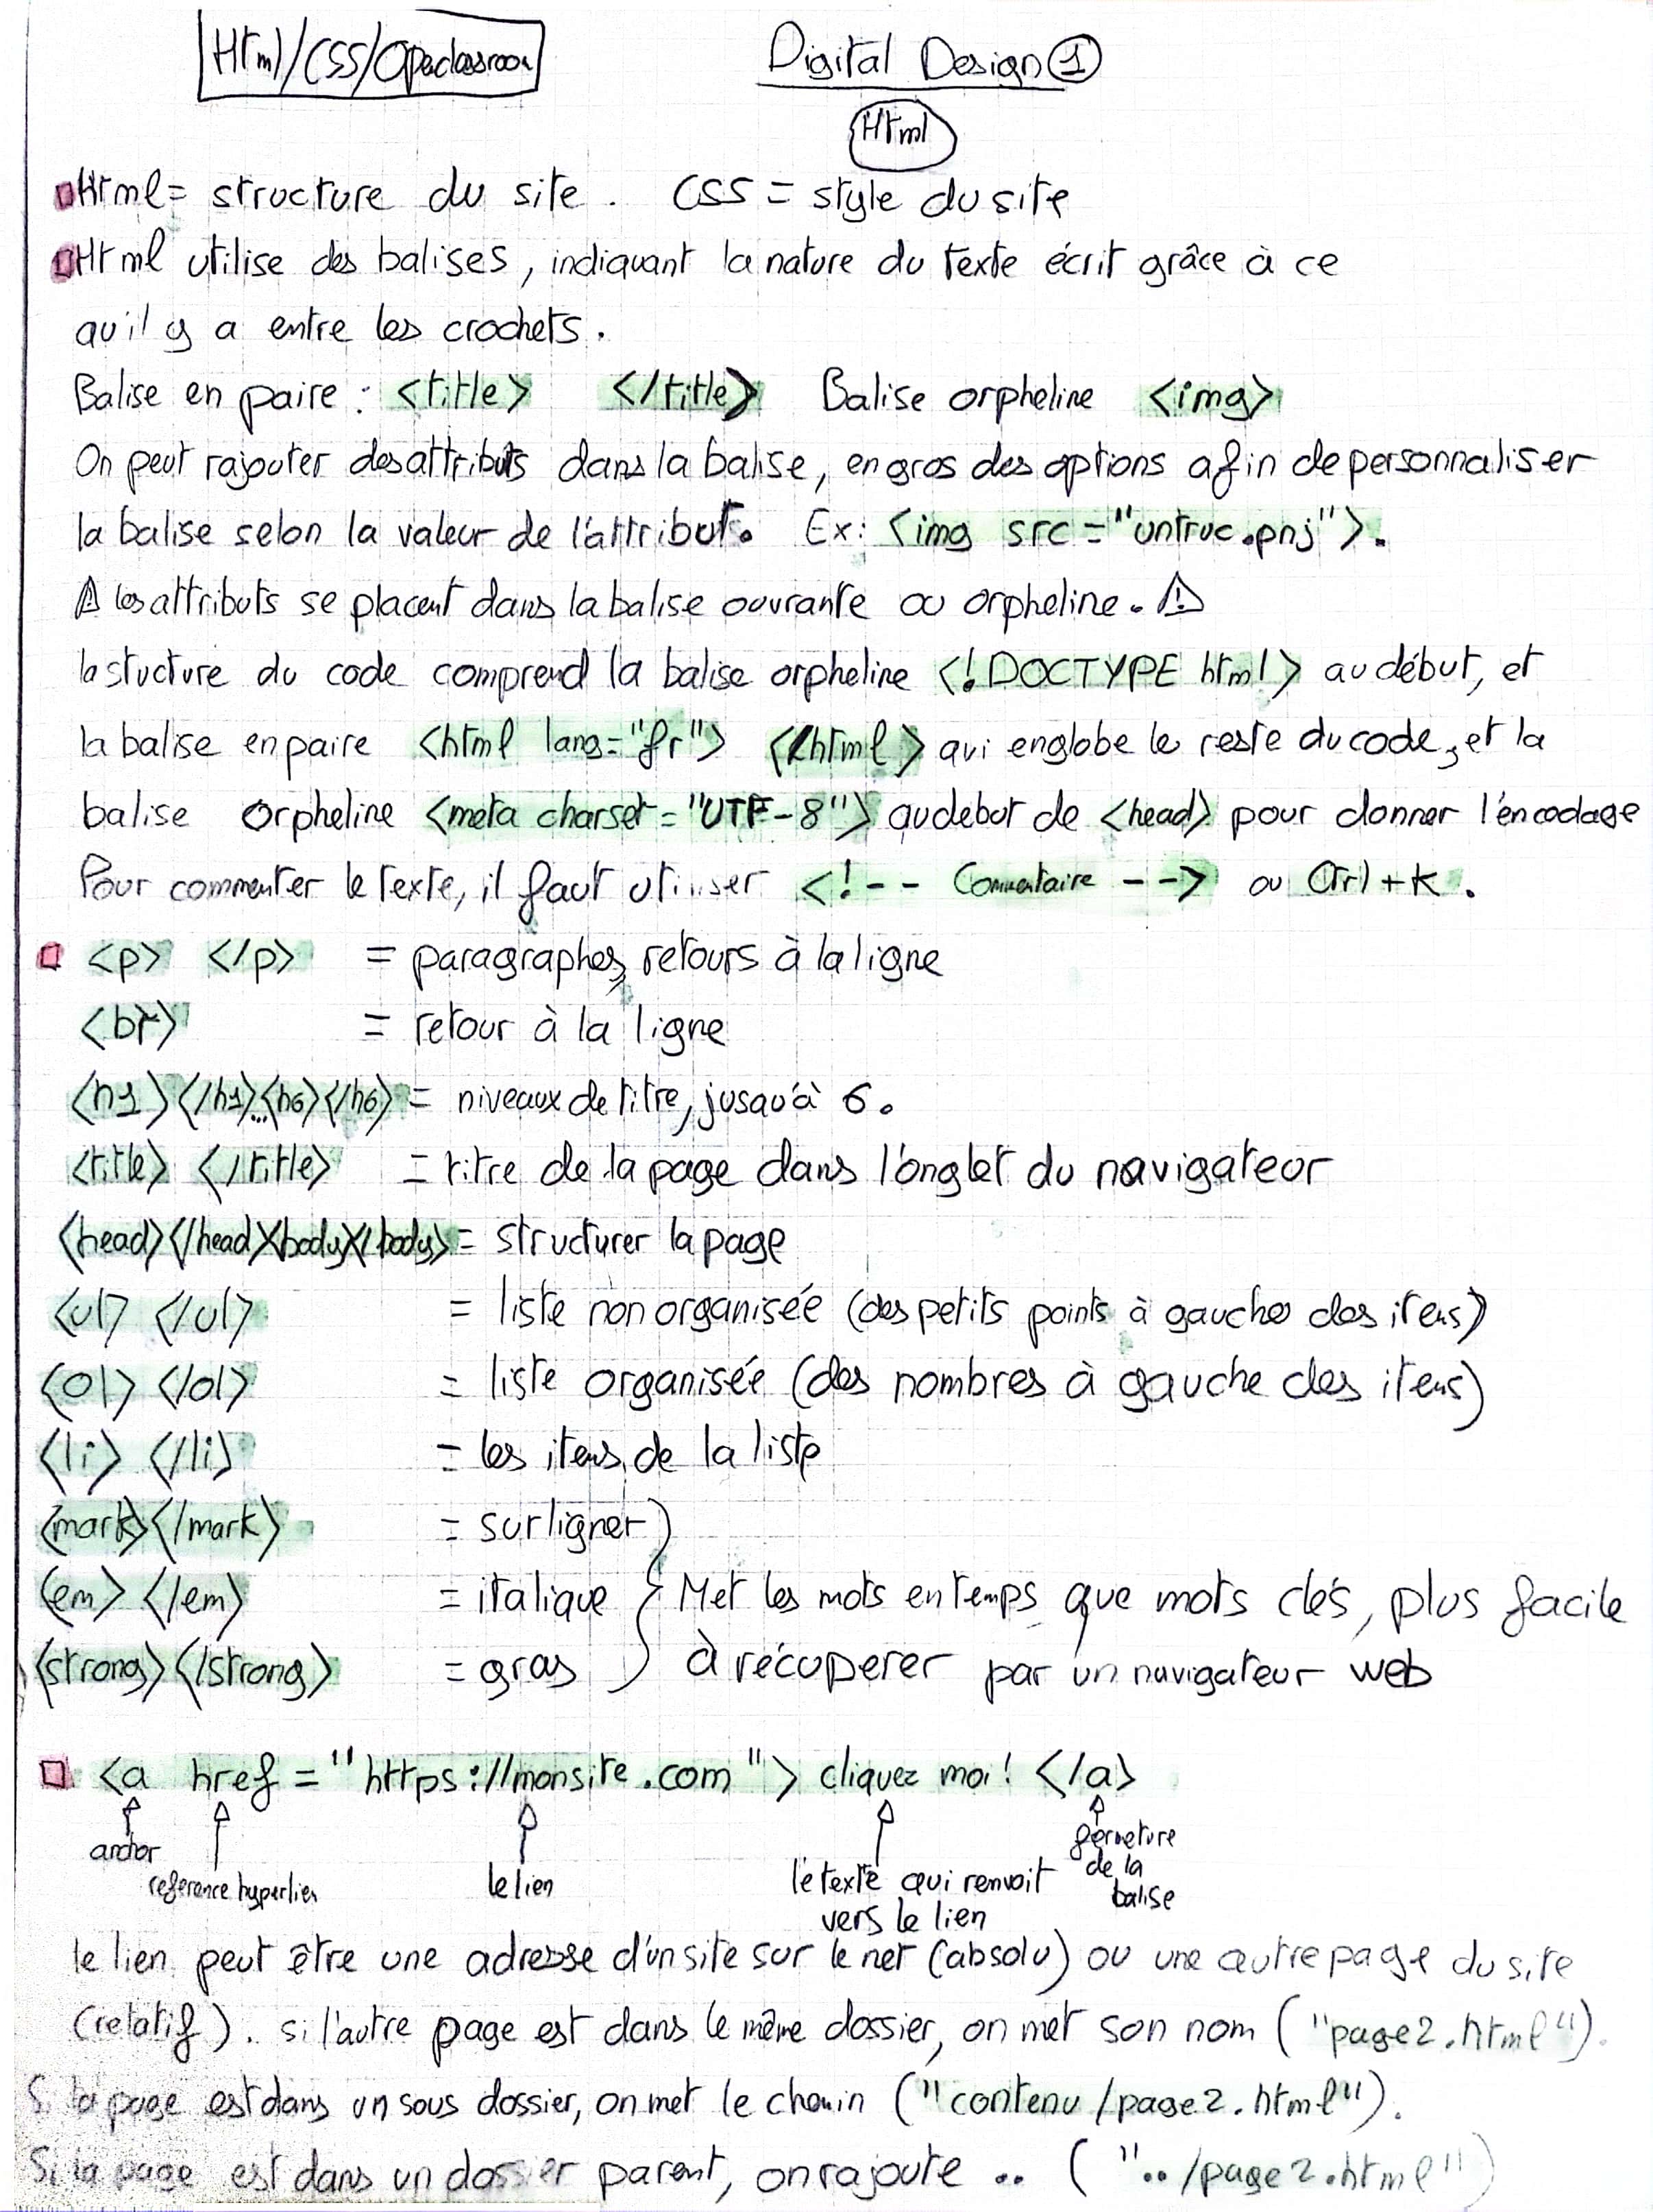 Html/CSS/Opeclassroom
Digital Design ①
Html
Html = structure du site. CSS = style du site
Html utilise des balises, indiquant la nature du texte écrit grâce à ce
qu'il y a entre les crochets.
Balise en paire : <title> </title> Balise orpheline <img>
On peut rajouter des attributs dans la balise, en gros des options afin de personnaliser
la balise selon la valeur de l'attribut. Ex: <img src="untruc.pnj">.
⚠ les attributs se placent dans la balise ouvrante ou orpheline. ⚠
la stucture du code comprend la balise orpheline <!DOCTYPE html> au début, et
la balise en paire <html lang="fr"> </html> qui englobe le reste du code, et la
balise orpheline <meta charset="UTF-8"> au debut de <head> pour donner l'encodage
Pour commenter le texte, il faut utiliser <!-- Commentaire --> ou Ctrl+K.
<p> </p> = paragraphes, retours à la ligne
<br> = retour à la ligne
<h1></h1>...<h6></h6> = niveaux de titre, jusqu'à 6.
<title> </title> = titre de la page dans l'onglet du navigateur
<head></head><body></body> = structurer la page
<ul> </ul> = liste non organisée (des petits points à gauche des items)
<ol> </ol> = liste organisée (des nombres à gauche des items)
<li> </li> = les items de la liste
<mark></mark> = surligner
<em> </em> = italique } Met les mots en temps que mots clés, plus facile
<strong></strong> = gras à récuperer par un navigateur web
<a href="https://monsite.com"> cliquez moi! </a>
anchor
reference hyperlien
le lien
le texte qui renvoit
vers le lien
fermeture
de la
balise
le lien peut être une adresse d'un site sur le net (absolu) ou une autre page du site
(relatif). si l'autre page est dans le même dossier, on met son nom ("page2.html").
Si la page est dans un sous dossier, on met le chemin ("contenu/page2.html").
Si la page est dans un dossier parent, on rajoute .. ("../page2.html")